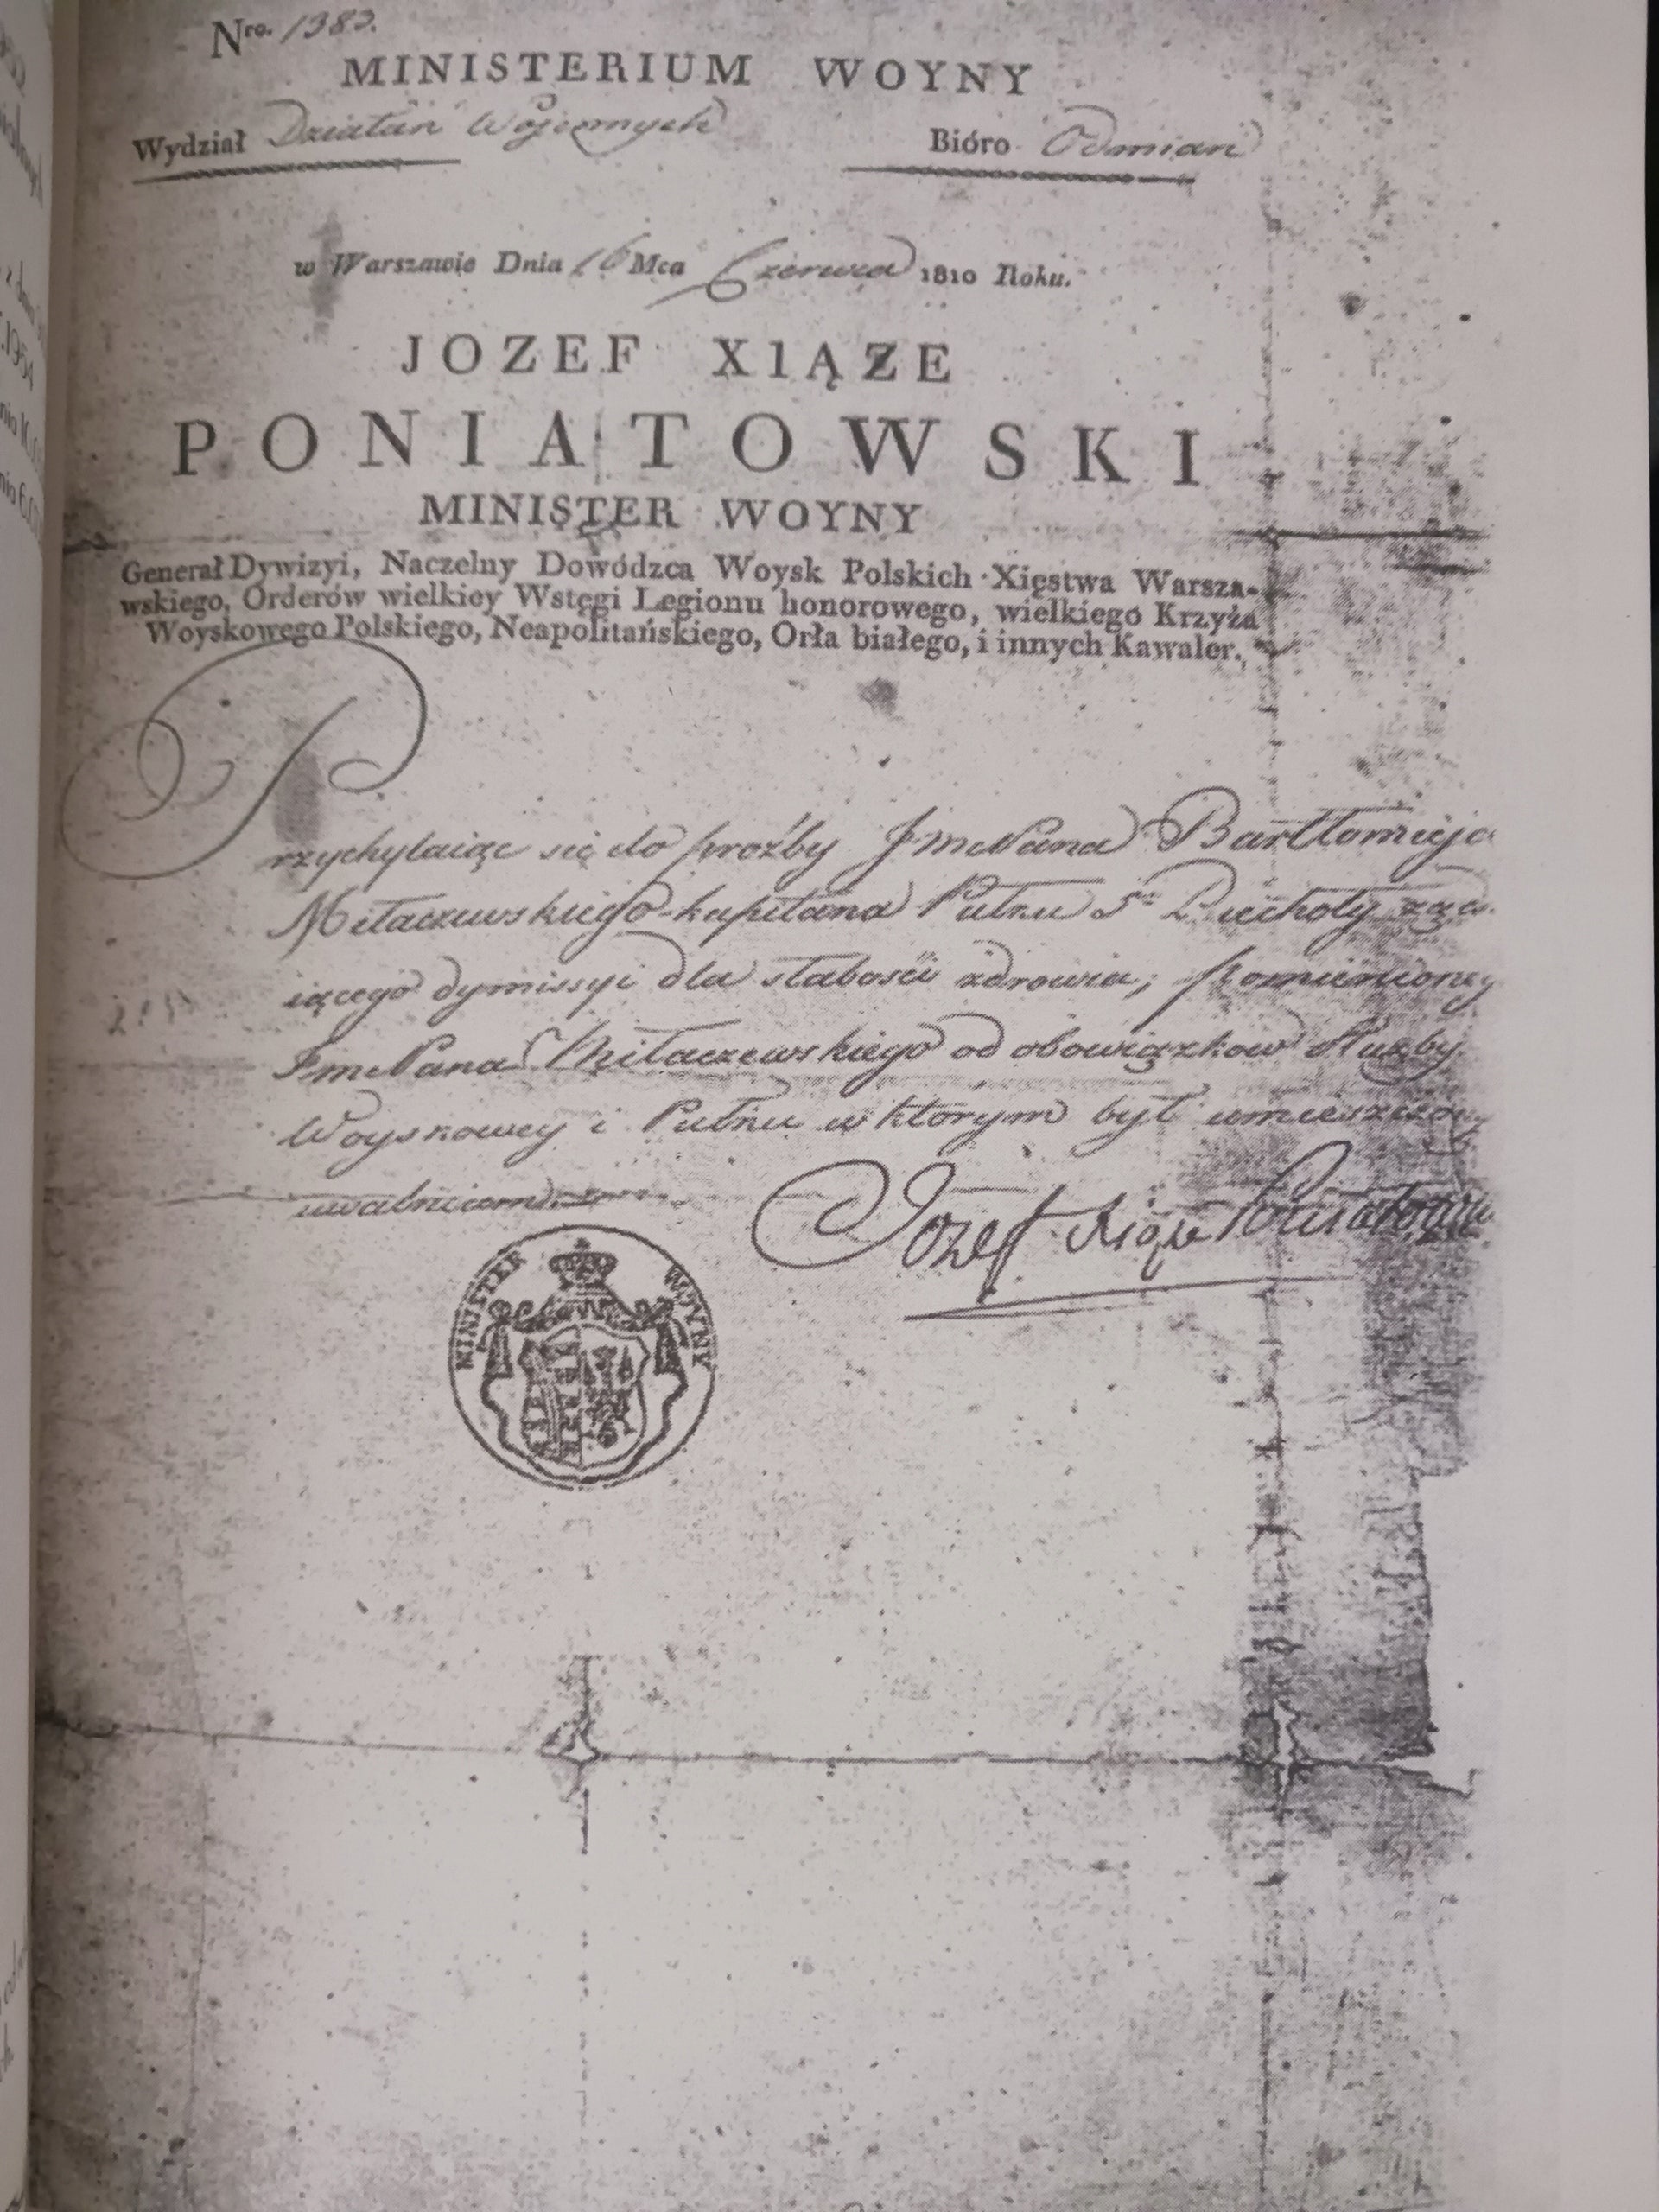 Nro. 1383.
MINISTERIUM WOYNY
Wydział Działań Wojennych Bióro Odmian
w Warszawie Dnia 16 Mca Czerwca 1810 Roku.
JOZEF XIĄZE
PONIATOWSKI
MINISTER WOYNY
Generał Dywizyi, Naczelny Dowódzca Woysk Polskich Xięstwa Warsza-
wskiego, Orderów wielkiey Wstęgi Legionu honorowego, wielkiego Krzyża
Woyskowego Polskiego, Neapolitańskiego, Orła białego, i innych Kawaler.
Przychylaiąc się do proźby JmcPana Bartłomieja
Miłaczewskiego kapitana Pułku 5º Piechoty żąda-
iącego dymissyi dla słabości zdrowia; pomienionego
JmcPana Miłaczewskiego od obowiązkow Służby
Woyskowey i Pułku w ktorym był umieszczony
uwalniam.
Jozef Xiąże Poniatowski
MINISTER WOYNY